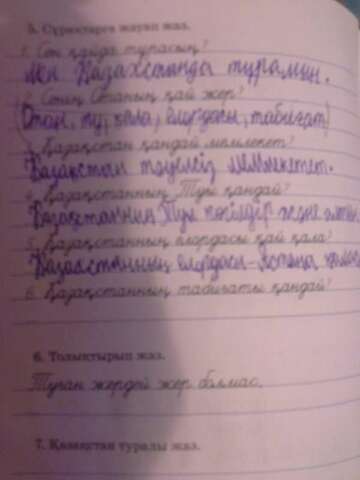 5. Сұрақтарға жауап жаз.
1. Сен қайда тұрасың?
Мен Казахстанда тұрамын.
2. Сенің Отаның қай жер?
(Отан, ту, қала, елордасы, табиғат)
3. Қазақстан қандай мемлекет?
Қазақстан тәуелсіз мемлекет.
4. Қазақстанның Туы қандай?
Қазақстанның Туы көгілдір және алтын
5. Қазақстанның елордасы қай қала?
Қазақстанның елордасы - Астана қаласы
6. Қазақстанның табиғаты қандай?
6. Толықтырып жаз.
Туған жердей жер болмас.
7. Қазақстан туралы жаз.